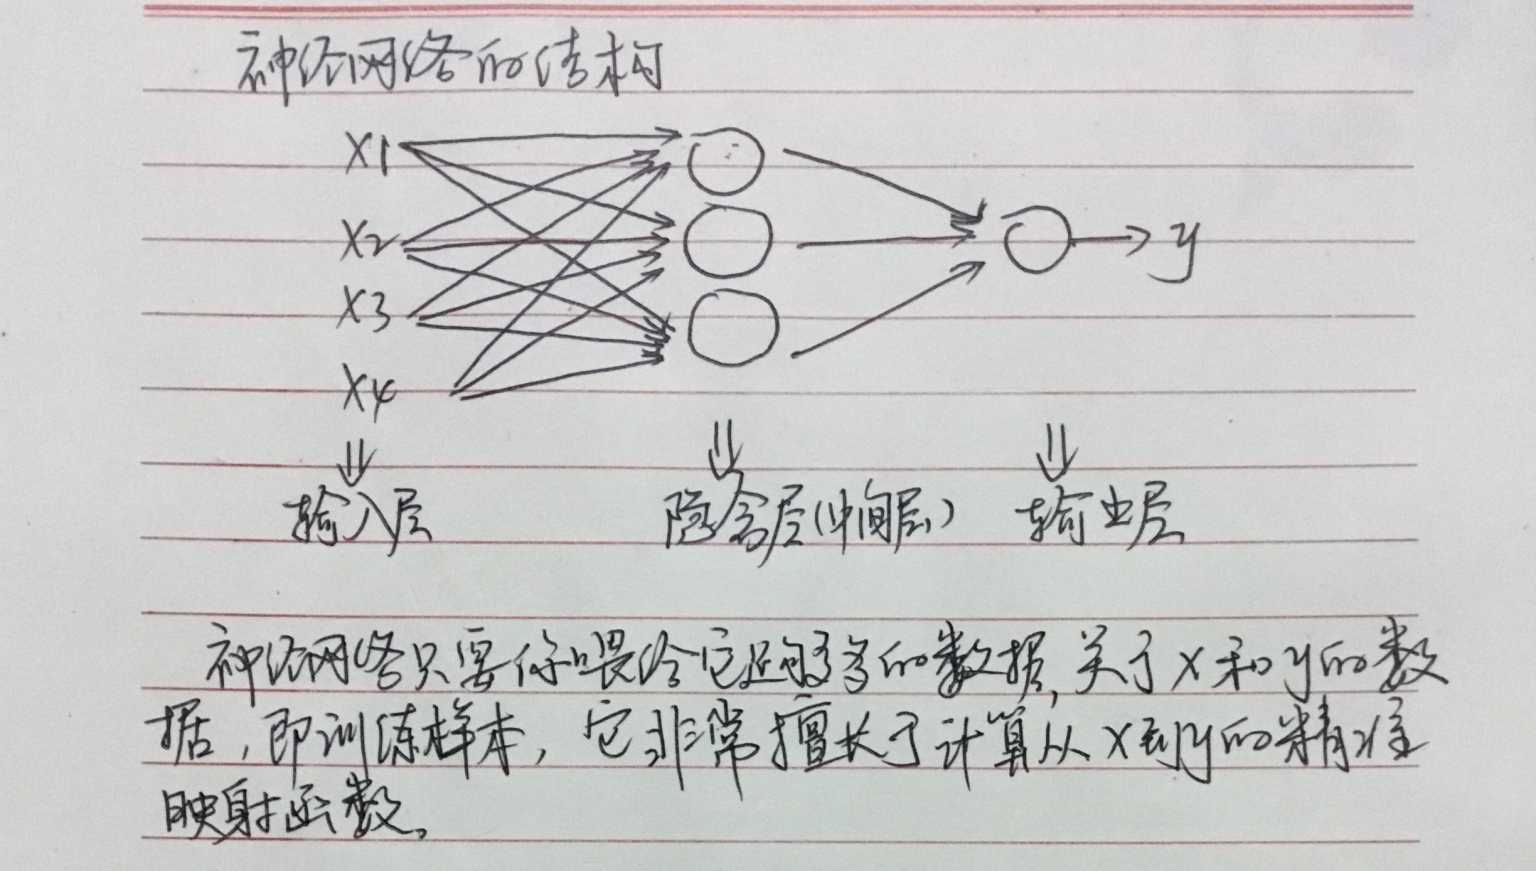 神经网络的结构
x1
x2
y
x3
x4
输入层 隐含层(中间层) 输出层
神经网络只要你喂给它足够多的数据,关于x和y的数
据,即训练样本,它非常擅长于计算从x到y的精准
映射函数。